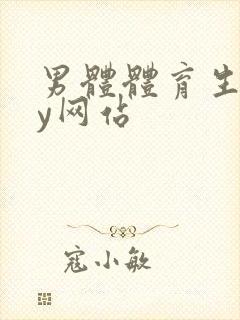 男體體育生
y网佔
寇小敏